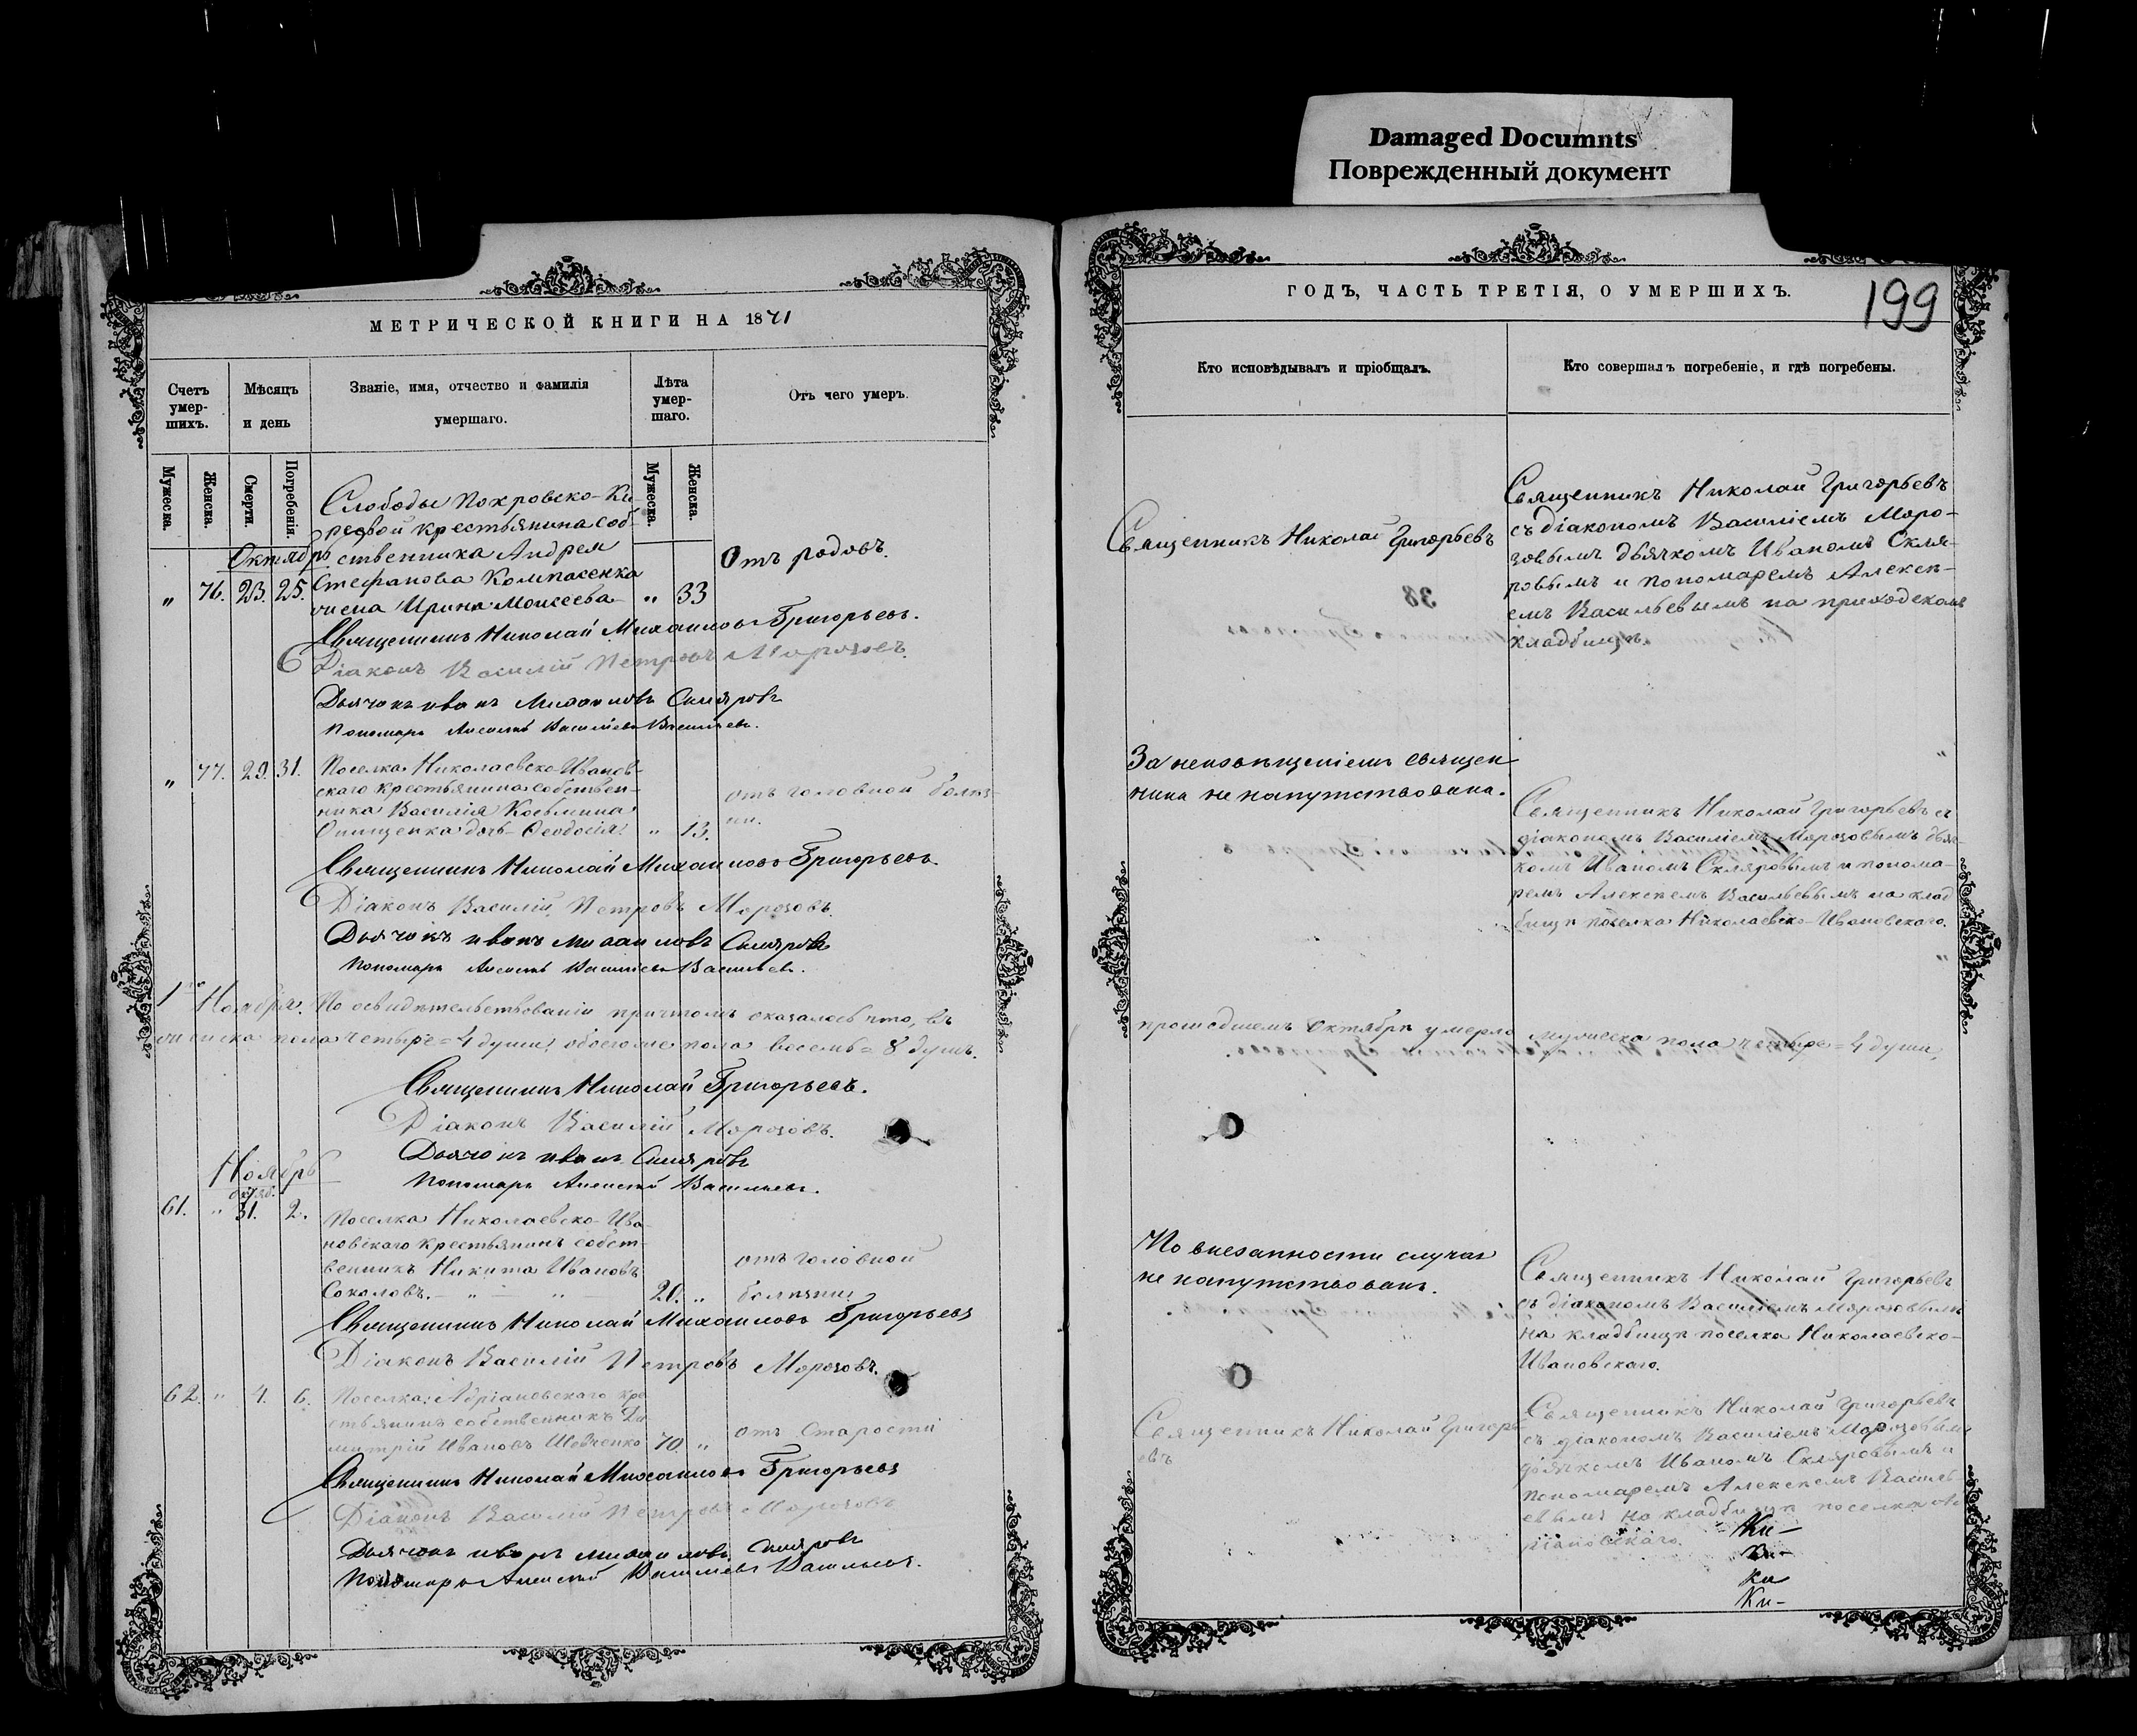 Damaged Documnts
Поврежденный документ
МЕТРИЧЕСКОЙ КНИГИ НА 1871
Счетъ умер-шихъ.
Мѣсяцъ и день
Званіе, имя, отчество и фамилія умершаго.
Лѣта умер-шаго.
Отъ чего умеръ.
Мужеска.
Женска.
Смерти.
Погребенія.
Мужеска.
Женска.
Октябрь
Слободы Покровско-Ки-
реевой крестьянина соб-
ственника Андрея
„ 76. 23. 25. Стефанова
жена Ирина Моисеева „ 33
Отъ родовъ.
Священникъ Николай Михаиловъ Григорьевъ.
Діаконъ Василій Петровъ Морозовъ.
Дьячокъ Иванъ Михаиловъ Скляровъ
Пономарь Алексѣй Васильевъ Васильевъ.
„ 77. 29. 31. Поселка Николаевско-Иванов-
скаго крестьянина собствен-
ника Василія Косьмина
Онищенка дочь Ѳеодосія. „ 13.
отъ головной болѣз-
ни.
Священникъ Николай Михаиловъ Григорьевъ.
Діаконъ Василій Петровъ Морозовъ.
Дьячокъ Иванъ Михаиловъ Скляровъ
Пономарь Алексѣй Васильевъ Васильевъ.
1го Ноября. По освидѣтельствованіи причтомъ оказалось что, въ
женска пола четыре = 4 души, обоего же пола восемь = 8 душъ.
Священникъ Николай Григорьевъ.
Діаконъ Василій Морозовъ.
Дьячокъ Иванъ Скляровъ
Пономарь Алексѣй Васильевъ.
Ноябрь
октяб.
61. „ 31. 2. Поселка Николаевско-Ива-
новскаго крестьянинъ собст-
венникъ Никита Ивановъ
Соколовъ. 20. „
отъ головной
болѣзни
Священникъ Николай Михаиловъ Григорьевъ
Діаконъ Василій Петровъ Морозовъ.
62. „ 4. 6. Поселка Адріановскаго кре
стьянинъ собственникъ Ди
митрій Ивановъ Шевченко 70. „
отъ старости
Священникъ Николай Михаиловъ Григорьевъ
Діаконъ Василій Петровъ Морозовъ
Дьячокъ Иванъ Михаиловъ Скляровъ
Пономарь Алексѣй Васильевъ Васильевъ.
ГОДЪ, ЧАСТЬ ТРЕТІЯ, О УМЕРШИХЪ.
199
Кто исповѣдывалъ и пріобщалъ.
Кто совершалъ погребеніе, и гдѣ погребены.
Священникъ Николай Григорьевъ
Священникъ Николай Григорьевъ
съ діакономъ Василіемъ Моро-
зовымъ дьячкомъ Иваномъ Скля-
ровымъ и пономаремъ Алексѣ-
емъ Васильевымъ на приходскомъ
кладбищѣ.
За неизвѣщеніемъ священ
ника не напутствована.
Священникъ Николай Григорьевъ съ
діакономъ Василіемъ Морозовымъ дьяч-
комъ Иваномъ Скляровымъ и понома-
ремъ Алексѣемъ Васильевымъ на клад
бищѣ поселка Николаевско-Ивановскаго.
прошедшемъ Октябрѣ умерло мужеска пола четыре = 4 души,
По внезапности случая
не напутствованъ.
Священникъ Николай Григорьевъ
съ діакономъ Василіемъ Морозовымъ
на кладбищѣ поселка Николаевско-
Ивановскаго.
Священникъ Николай Григорь
евъ
Священникъ Николай Григорьевъ
съ діакономъ Василіемъ Морозовымъ
дьячкомъ Иваномъ Скляровымъ и
пономаремъ Алексѣемъ Василь
евымъ на кладбищѣ поселка Ад
ріановскаго.